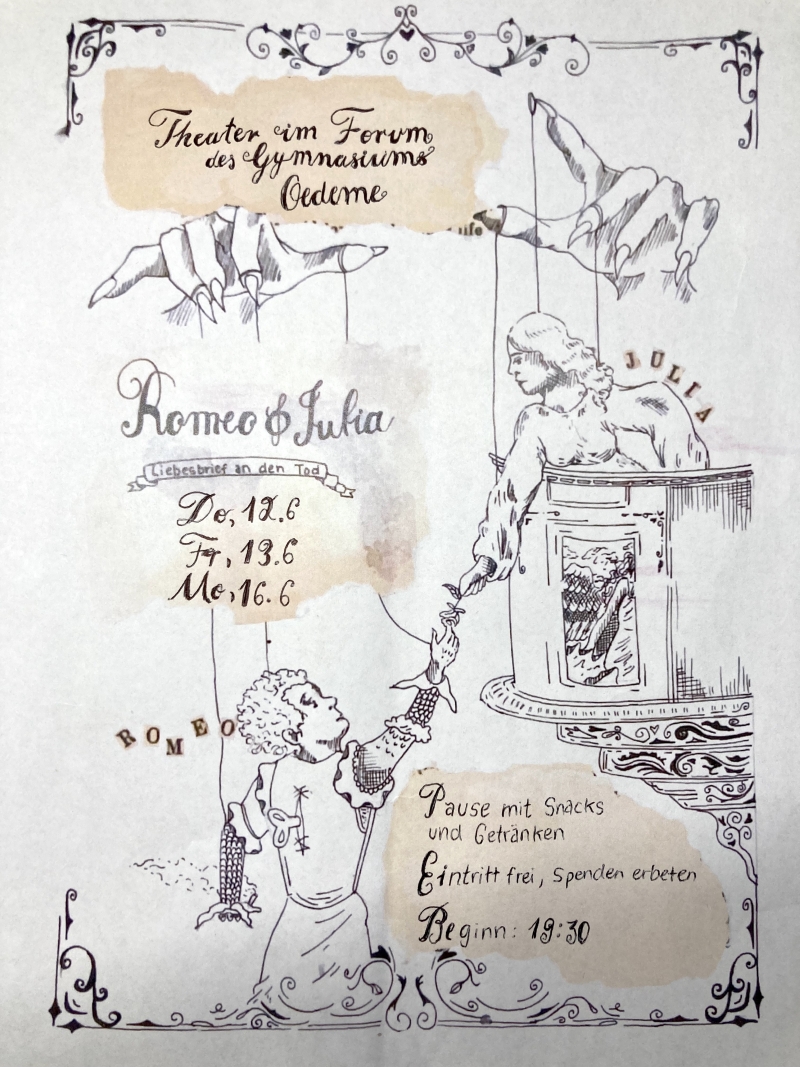 Theater im Forum
des Gymnasiums
Oedeme
life
Romeo & Julia
Liebesbrief an den Tod
Do, 12.6
Fr, 13.6
Mo, 16.6
JULIA
ROMEO
Pause mit Snacks
und Getränken
Eintritt frei, Spenden erbeten
Beginn: 19:30